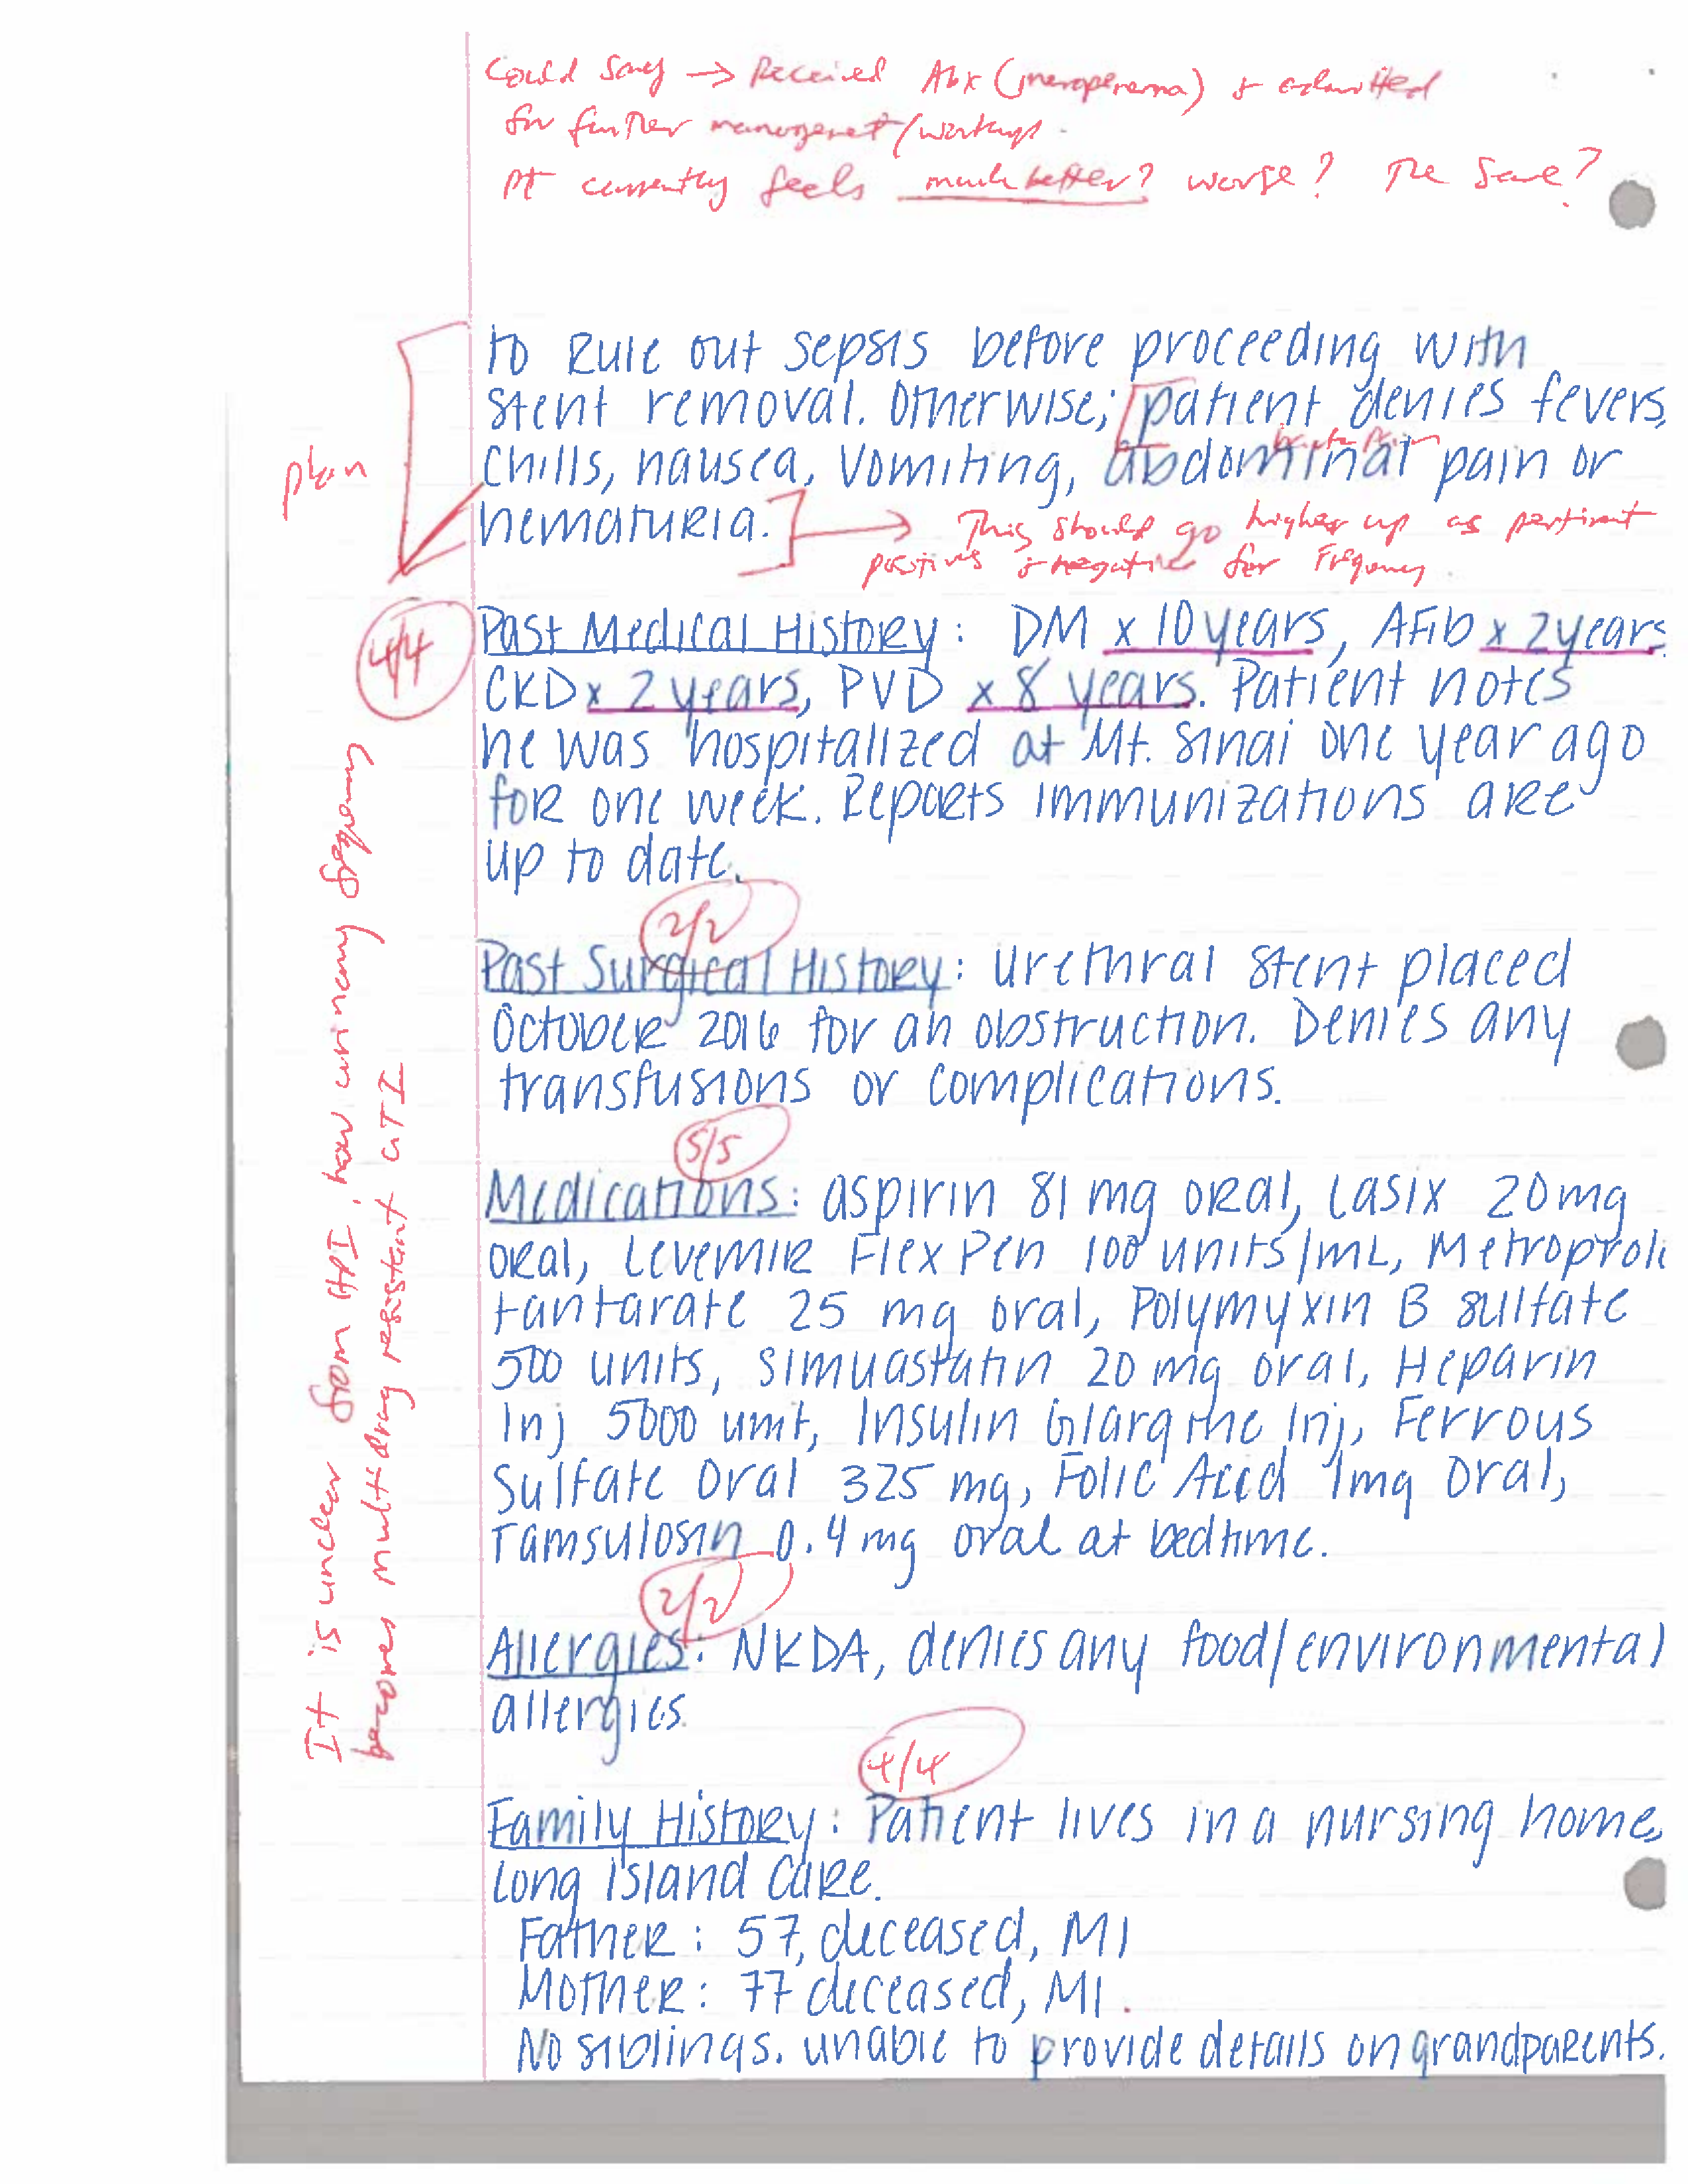 Could say → Received Abx (meropenema) & admitted
for further management/workup.
Pt currently feels much better? worse? The Same?
to Rule out sepsis before proceeding with
stent removal. Otherwise; patient denies fevers,
chills, nausea, vomiting, abdominal pain or
hematuria.
→ This should go higher up as pertinent
positives & negative for frequency.
plan
4/4
Past Medical History: DM x 10 years, AFib x 2 years
CKD x 2 years, PVD x 8 years. Patient notes
he was hospitalized at Mt. Sinai one year ago
for one week. Reports immunizations are
up to date.
It is unclear from HPI, how urinary frequency
becomes multidrug resistant UTI
2/2
Past Surgical History: Urethral stent placed
October 2016 for an obstruction. Denies any
transfusions or complications.
5/5
Medications: aspirin 81 mg oral, Lasix 20mg
oral, Levemir FlexPen 100 units/mL, Metroprolo
tantarate 25 mg oral, Polymyxin B sulfate
500 units, simuastatin 20 mg oral, Heparin
Inj 5000 unit, Insulin Glargine Inj, Ferrous
Sulfate Oral 325 mg, Folic Acid 1mg Oral,
Tamsulosin 0.4 mg oral at bedtime.
2/2
Allergies: NKDA, denies any food/environmental
allergies
4/4
Family History: Patient lives in a nursing home,
Long Island Care.
Father: 57, deceased, MI
Mother: 77 deceased, MI.
No siblings. unable to provide details on grandparents.